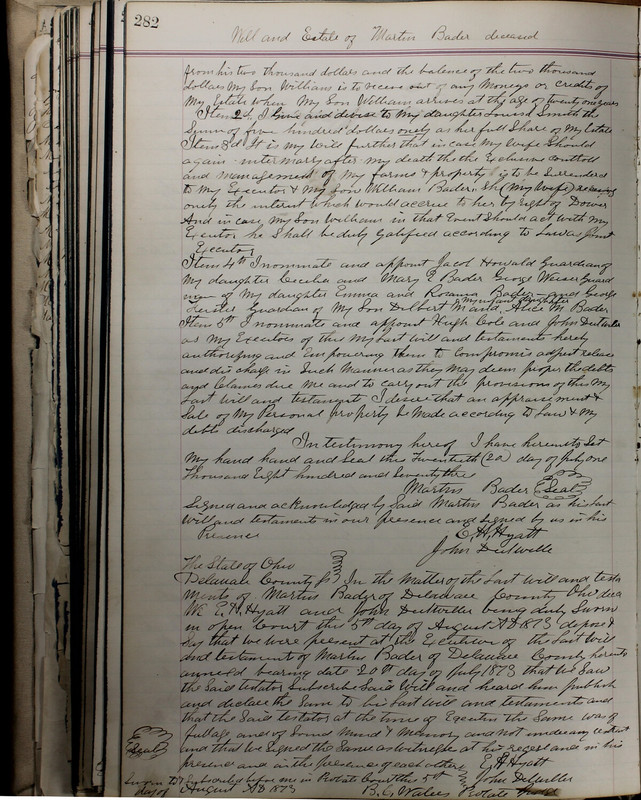 282
Will and Estate of Martin Bader deceased
from his two thousand dollars and the balance of the two thousand
dollars My Son William is to receve out of any Moneys or Credits of
My Estate when My Son William arrives at the age of twenty one years
Item 2d, I Give and devise to my daughter Smith the
Sum of five hundred dollars only as her full Share of My Estate
Item 3d It is my Will further that in case My Wife Should
again intermarry after my death the the Exclusive controll
and management of My farms & property is to be Surrendered
to My Executor & My Son William Bader, She (My Wife)
only the interest which would accrue to her by right of Dower
And in case My Son William in that Event Should act with My
Executor he Shall be duly qalified according to Law as Joint
Executors
Item 4th I nominate and appoint Jacob Howald Guardian of
My daughter Cecilia and Mary E Bader George Weiser Guard
ian of My daughter Emma and Rosanna Bader and George
Guardian of My Son Delbert M and my infant daughter Alice M Bader
Item 5th I nominate and appoint Hugh Cole and John
as My Executors of this My Last Will and testament hereby
authorizing and Empowering them to Compromis adjust release
and discharge in Such Manner as they May deem proper the debts
and Claimes due Me and to carry out the provisions of this My
Last Will and testament I desire that an appraisement &
Sale of My Personal property be Made according to Law & My
debts discharged
In testimony hereof I have hereunto Set
My hand hand and Seal the Twentieth (20) day of July one
Thousand Eight hundred and Seventy three
Martin Bader Seal
Signed and acknowledged by Said Martin Bader as his Last
Will and testament in our presence and Signed by us in his
Presence
E. H. Hyatt
John
The State of Ohio
Delaware County SS In the Matter of the Last Will and testa
ments of Martin Bader of Delaware County Ohio
We E. H. Hyatt and John being duly Sworn
in open Court this 5th day of August AD 1873 depose &
Say that we were present at the Execution of the Last Will
and testament of Martin Bader of Delaware County hereunto
annexed bearing date 20th day of July 1873 that We Saw
the Said testator Subscribe Said Will and heard him publish
and declare the Same to be his Last Will and testament and
that the Said testator at the time of Executin the Same was of
full age and of Sound Mind & Memory and not under any restraint
and that We Signed the Same as Witnesses at his request and in his
presence and in the presence of each other E. H. Hyatt
Seal
Sworn to & Subscribed before me in Probate Court this 5th John
day of August AD 1873 B. C. Waters Probate Judge